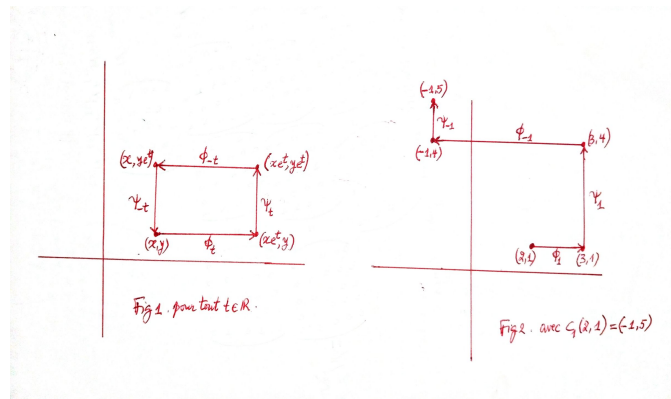 (x, ye^t)
ϕ_-t
(xe^t, ye^t)
ψ_-t
ψ_t
(x,y)
ϕ_t
(xe^t, y)
Fig 1. pour tout t∈ℝ.
(-1,5)
ψ_-1
(-1,4)
ϕ_-1
(3,4)
ψ_1
(2,1)
ϕ_1
(3,1)
Fig 2. avec C_1(2,1)=(-1,5)